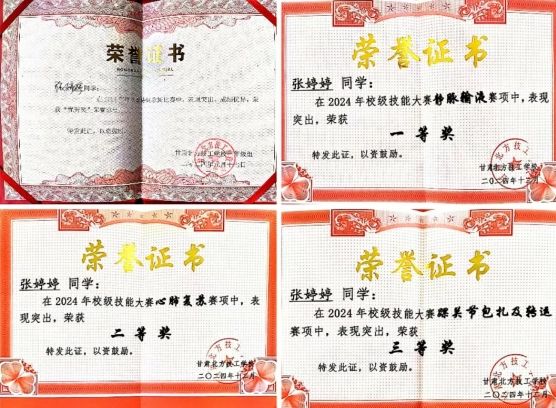 荣誉证书
张婷婷同学:
特发此证,以资鼓励。
荣誉证书
张婷婷 同学:
在 2024 年校级技能大赛静脉输液赛项中,表现
突出,荣获
一等奖
特发此证,以资鼓励。
甘肃北方技工学校
二〇二四年十二月
荣誉证书
张婷婷 同学:
在 2024 年校级技能大赛心肺复苏赛项中,表
现突出,荣获
二等奖
特发此证,以资鼓励。
甘肃北方技工学校
二〇二四年十二月
荣誉证书
张婷婷 同学:
在 2024 年校级技能大赛踝关节包扎及转运
赛项中,表现突出,荣获
三等奖
特发此证,以资鼓励。
甘肃北方技工学校
二〇二四年十二月